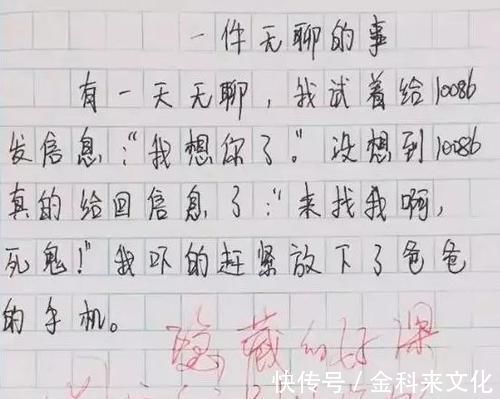 一件无聊的事
有一天无聊，我试着给10086
发信息："我想你了。"没想到10086
真的给回信息了："来找我啊，
死鬼！"我吓的赶紧放下了爸爸
的手机。
隐藏的好深
快传号／金科来文化